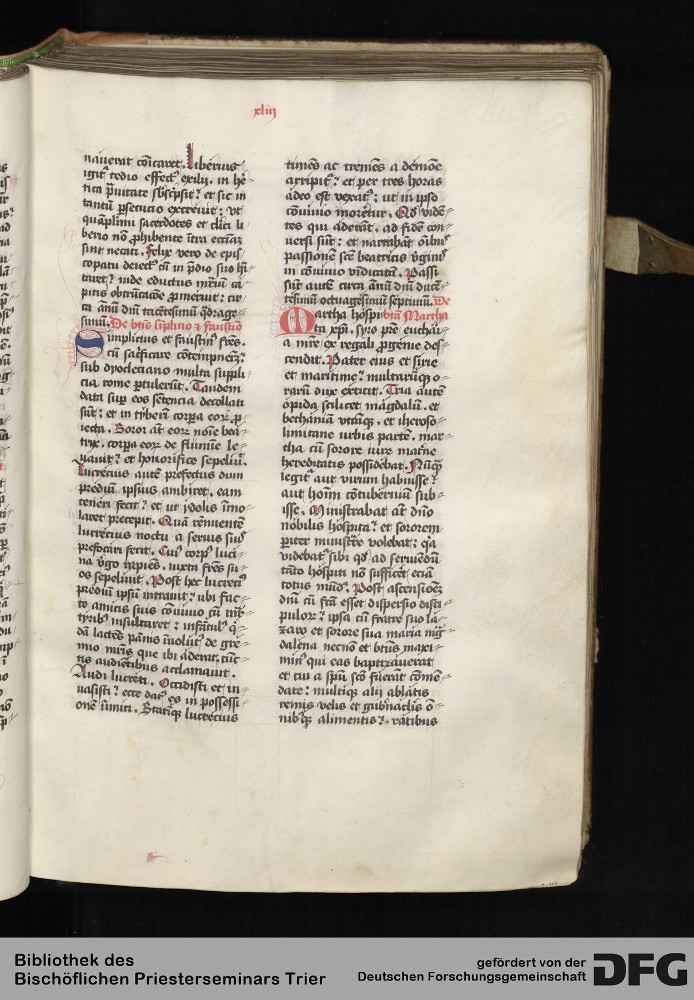 xliij
nauerat cōicaret. Liberius
igit᷒ tedio effect᷒ exilij. in he
tica p̄uitate sb̄scpsit᷒ et sic in
tantū p̄secucio excreuit: vt
quāplimi sacerdotes et clici li
berio nō p̄hibente īfra ecciaꝫ
sint necati. Felix vero de epis
copatu deiect᷒ cū in p̄dio suo hi
taret: inde eductus mr̄ iū ca
pitis obtrūcacōe p̄meruit: cir
ca ānū dm̄ tricētesimū q̄drage
simū. De btīs sīplicio ⁊ faustīo
Simplicius et faustin᷒ fr̄es.
cū sac̄ficare cōtempneꝫt:
sub dyocleciano multa suppli
cia rome ptulerūt. Tandem
data sup eos sētencia decollati
sūt: et in tyberī corpa eoꝝ p̄
iecta. Soror āt eoꝝ noīe bea
trix. corpa eoꝝ de flumīe le
uauit: et honorifice sepeliūt.
Lucrecius autē prefectus dum
prediū ipsius ambiret. eam
teneri fecit: et ut ydolis īmo
laret precepit. Quā rēnuentē
lucrecius noctu a seruis suis
prefocari fecit. Cui᷒ corp᷒ luci
na v̄go rapiēs. iuxta fr̄es su
os sepeliuit. Post hec lucreci᷒
prediū ipsū intrauit: ubi fac
to amicis suis cōuiuio cū mr̄
tyrib᷒ insultaret: infātul᷒ q̄
dā lactēs pānis īuolut᷒ de gre
mio mr̄is que ibi aderat. cūc
tis audiētibus acclamauit.
Audi lucreti. Occidisti et in
uasisti: ecce dat᷒ es in possessi
onē inimici. Statiqꝫ lucrecius
timēs ac tremēs a demōe
arripit᷒: et per tres horas
adeo est vexat᷒: ut in ipso
cōuiuio moretur. Qd̄ vidē
tes qui aderāt. ad fidē con
uersi sūt: et narrabāt oīb᷒
passionē scē beatricis v̄gīs
in cōuiuio vīdicatā. Passi
sūt autē circa ānū dm̄ ducē
tesimū octuagesimū septimū. De
Martha hospi btā Martha
ta xp̄i. syro pr̄e euchari
a mr̄e ex regali p̄genie des
cendit. Pater eius et syrie
et maritime: multarūqꝫ o
rarū dux extitit. Tria autē
opida scilicet magdalū. et
bethaniā vtāqꝫ. et iheroso
limitane urbis partē. mar
tha cū sorore iure matne
hereditatis possidebat. Nūqꝫ
legit᷒ aut virum habuisse:
aut hoīm cōtuberniū sub
isse. Ministrabat āt dn̄o
nobilis hospita: et sororem
pariter ministr̄e volebat: qa
videbat᷒ sibi qd̄ ad seruiendū
tāto hospiti nō sufficēt ecia
totus mūd᷒. Post ascensioēꝫ
dn̄i cū fcā esset dispersio disci
puloꝝ: ipsa cū fratre suo la
zaro et sorore sua maria mag
dalena necnō et btūs maxi
min᷒ qui eas baptizauerat
et cui a spū scō fuerāt cōmē
date: multiqꝫ alij ablatis
remis velis et gubnaclis o
nib᷒qꝫ alimentis: ratibus
Bibliothek des
Bischöflichen Priesterseminars Trier
gefördert von der
Deutschen Forschungsgemeinschaft
DFG